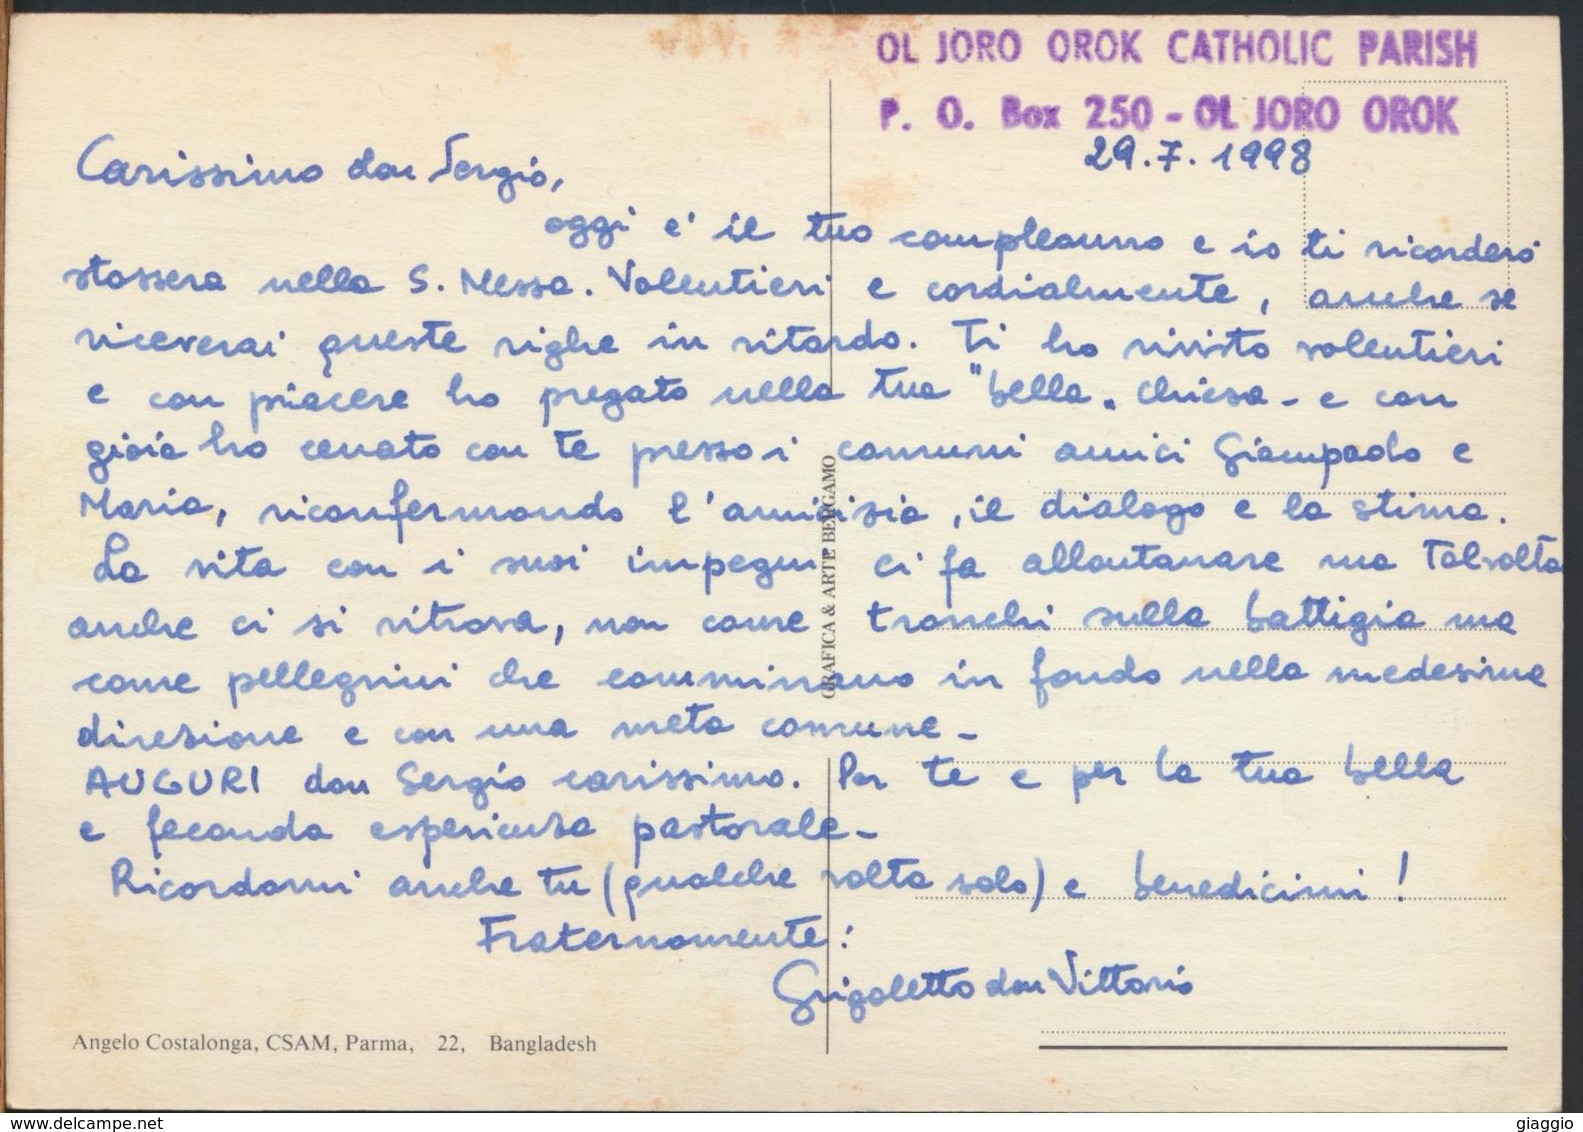 OL JORO OROK CATHOLIC PARISH
P. O. Box 250 - OL JORO OROK
29.7.1998
Carissimo don Sergio,
oggi e' il tuo compleanno e io ti ricorderò
stassera nella S. Messa. Volentieri e cordialmente, anche se
riceverai queste righe in ritardo. Ti ho rivisto volentieri
e con piacere ho pregato nella tua "bella" chiesa - e con
gioia ho cenato con te presso i comuni amici Giampaolo e
Maria, riconfermando l'amicizia, il dialogo e la stima.
La vita con i suoi impegni ci fa allontanare ma talvolta
anche ci si ritrova, non come tronchi sulla battigia ma
come pellegrini che camminano in fondo nella medesima
direzione e con una meta comune -
AUGURI don Sergio carissimo. Per te e per la tua bella
e feconda esperienza pastorale -
Ricordami anche tu (qualche volta solo) e benedicimi!
Fraternamente:
Grigoletto don Vittorio
GRAFICA & ARTE BERGAMO
Angelo Costalonga, CSAM, Parma, 22, Bangladesh
giaggio
www.delcampe.net